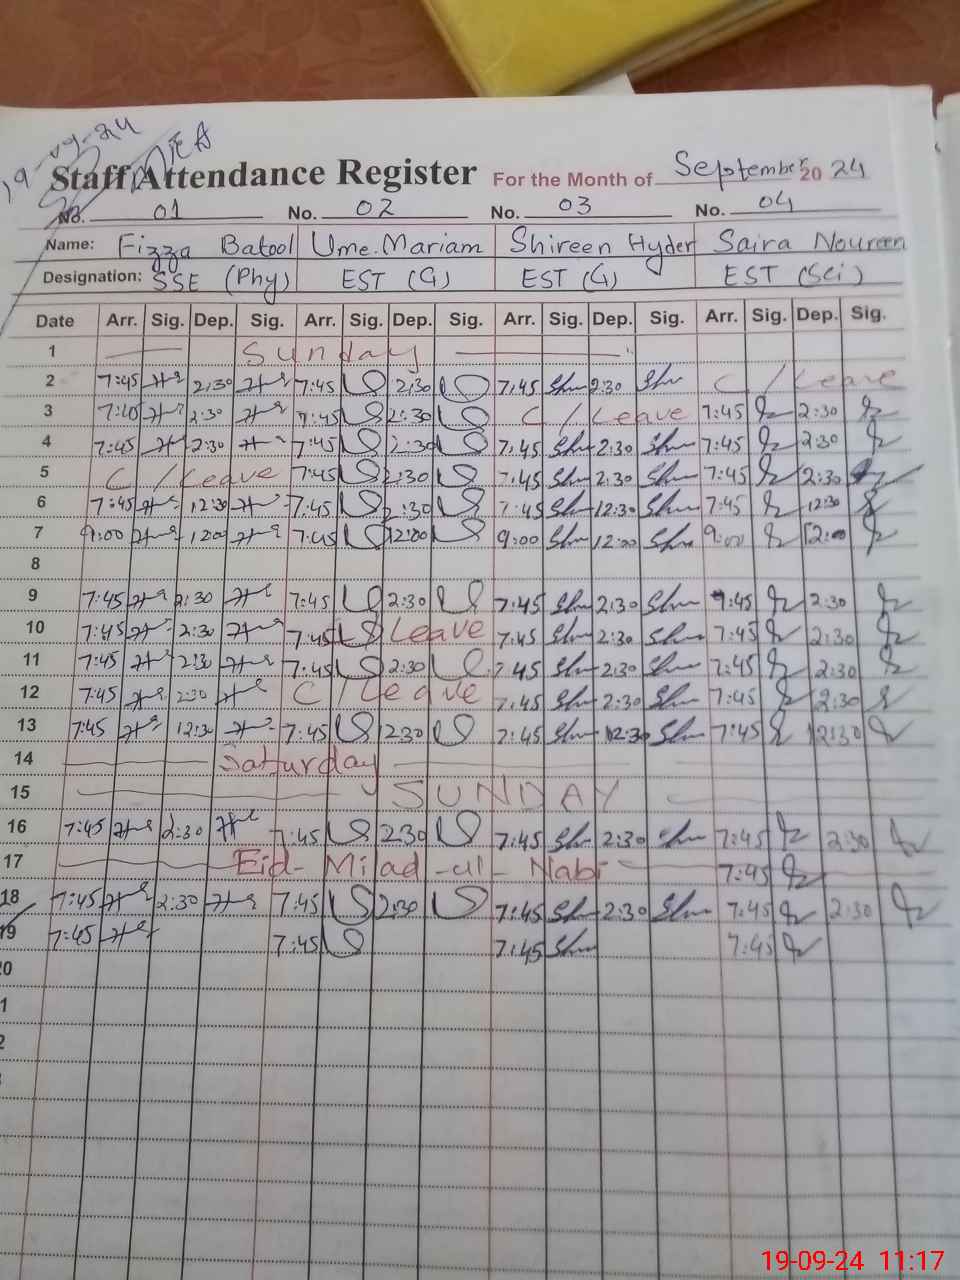 19-09-24
MEA
Staff Attendance Register For the Month of September 2024
No. 01 No. 02 No. 03 No. 04
Name: Fizza Batool Ume.Mariam Shireen Hyder Saira Noureen
Designation: SSE (Phy) EST (G) EST (G) EST (Sci)
Date Arr. Sig. Dep. Sig. Arr. Sig. Dep. Sig. Arr. Sig. Dep. Sig. Arr. Sig. Dep. Sig.
1 Sunday
2 7:45 2:30 7:45 2:30 7:45 2:30 C/Leave
3 7:40 2:30 7:45 2:30 C/Leave 7:45 2:30
4 7:45 2:30 7:45 2:30 7:45 2:30 7:45 2:30
5 C/Leave 7:45 2:30 7:45 2:30 7:45 2:30
6 7:45 12:30 7:45 2:30 7:45 12:30 7:45 12:30
7 9:00 12:00 7:45 12:00 9:00 12:00 9:00 12:00
8
9 7:45 2:30 7:45 2:30 7:45 2:30 7:45 2:30
10 7:45 2:30 7:45 Leave 7:45 2:30 7:45 2:30
11 7:45 2:30 7:45 2:30 7:45 2:30 7:45 2:30
12 7:45 2:30 C/Leave 7:45 2:30 7:45 2:30
13 7:45 12:30 7:45 1230 7:45 12:30 7:45 12:30
14 Saturday
15 SUNDAY
16 7:45 2:30 7:45 230 7:45 2:30 7:45 2:30
17 Eid-Milad-ul-Nabi 7:45
18 7:45 2:30 7:45 2:30 7:45 2:30 7:45 2:30
19 7:45 7:45 7:45 7:45
20
1
2
19-09-24 11:17